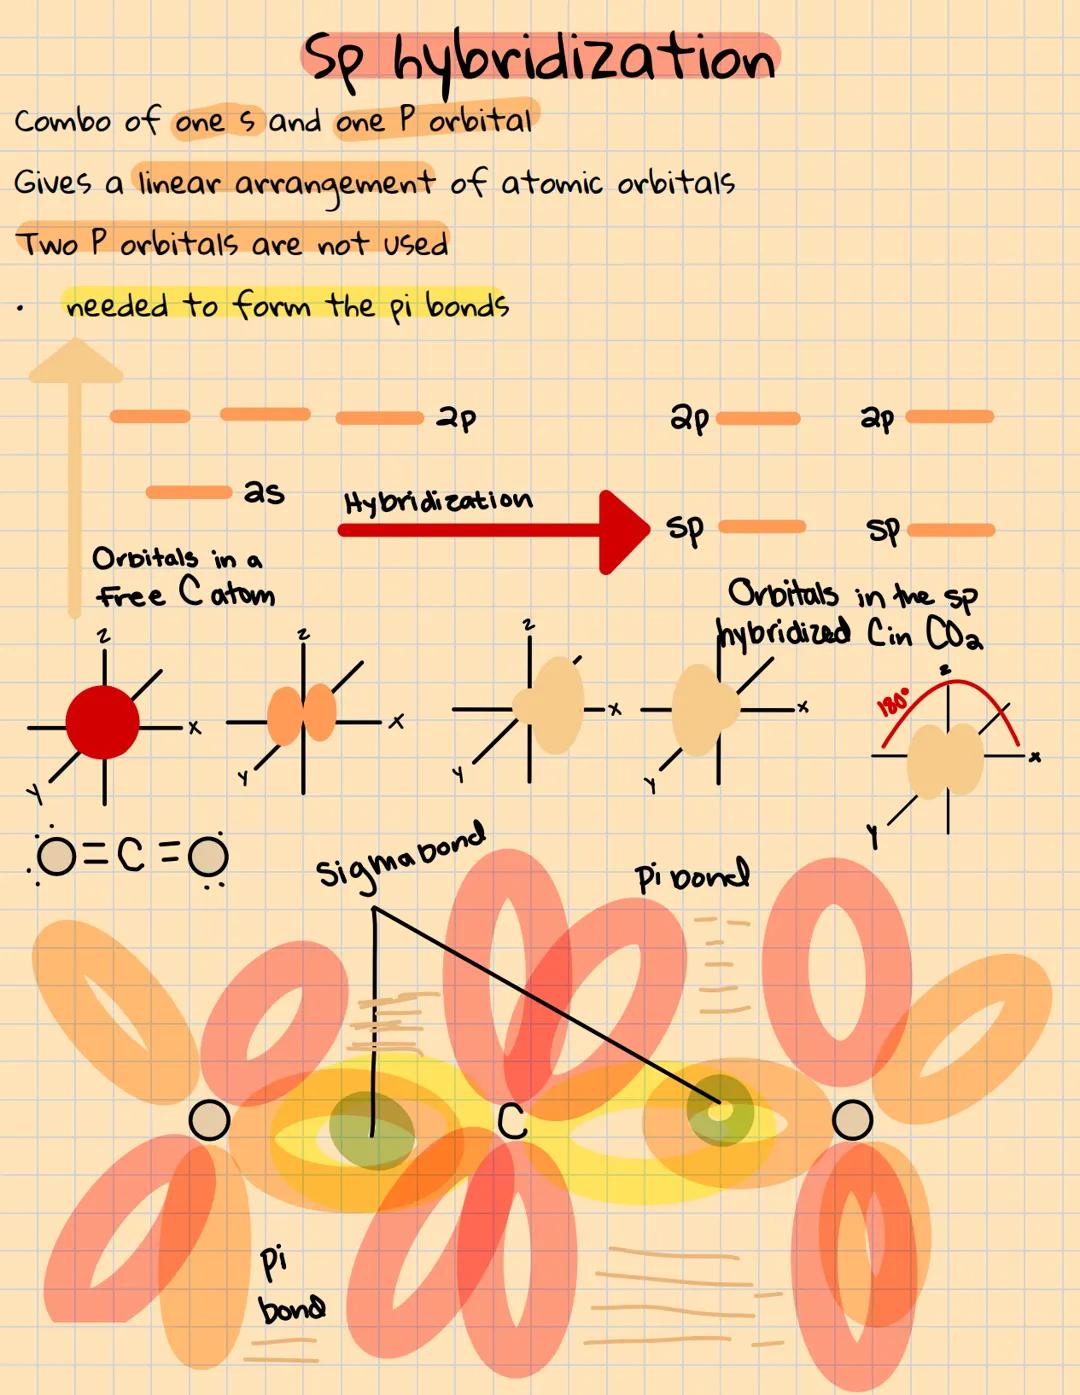 Sp hybridization
Combo of one s and one P orbital
Gives a linear arrangement of atomic orbitals
Two P orbitals are not used
· needed to form the pi bonds
2p
2p
2p
2s
Hybridization
sp
sp
Orbitals in a
free C atom
Orbitals in the sp
hybridized C in CO2
z
x
y
z
x
y
z
x
y
x
y
180°
z
x
y
O=C=O
Sigma bond
Pi bond
O
C
O
Pi
bond